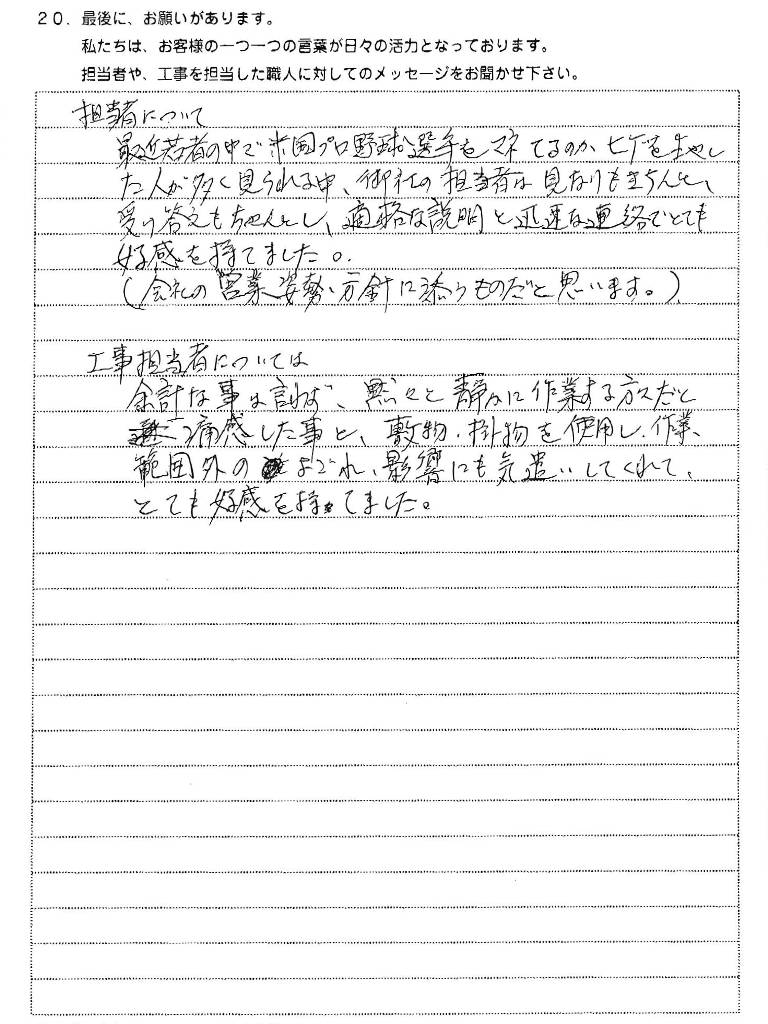 20．最後に、お願いがあります。
私たちは、お客様の一つ一つの言葉が日々の活力となっております。
担当者や、工事を担当した職人に対してのメッセージをお聞かせ下さい。
担当者について
最近若者の中で米国プロ野球選手をマネてるのか、ヒゲを生やし
た人が多く見られる中、御社の担当者は見なりもきちんと、
受け答えもちゃんとし、適格な説明と迅速な連絡でとても
好感を持てました。
（会社の営業姿勢、方針に添うものだと思います。）
工事担当者については
余計な事は言わず、黙々と静かに作業する方々だと
痛感した事と、敷物・掛物を使用し、作業
範囲外のよごれ、影響にも気遣いしてくれて、
とても好感を持てました。